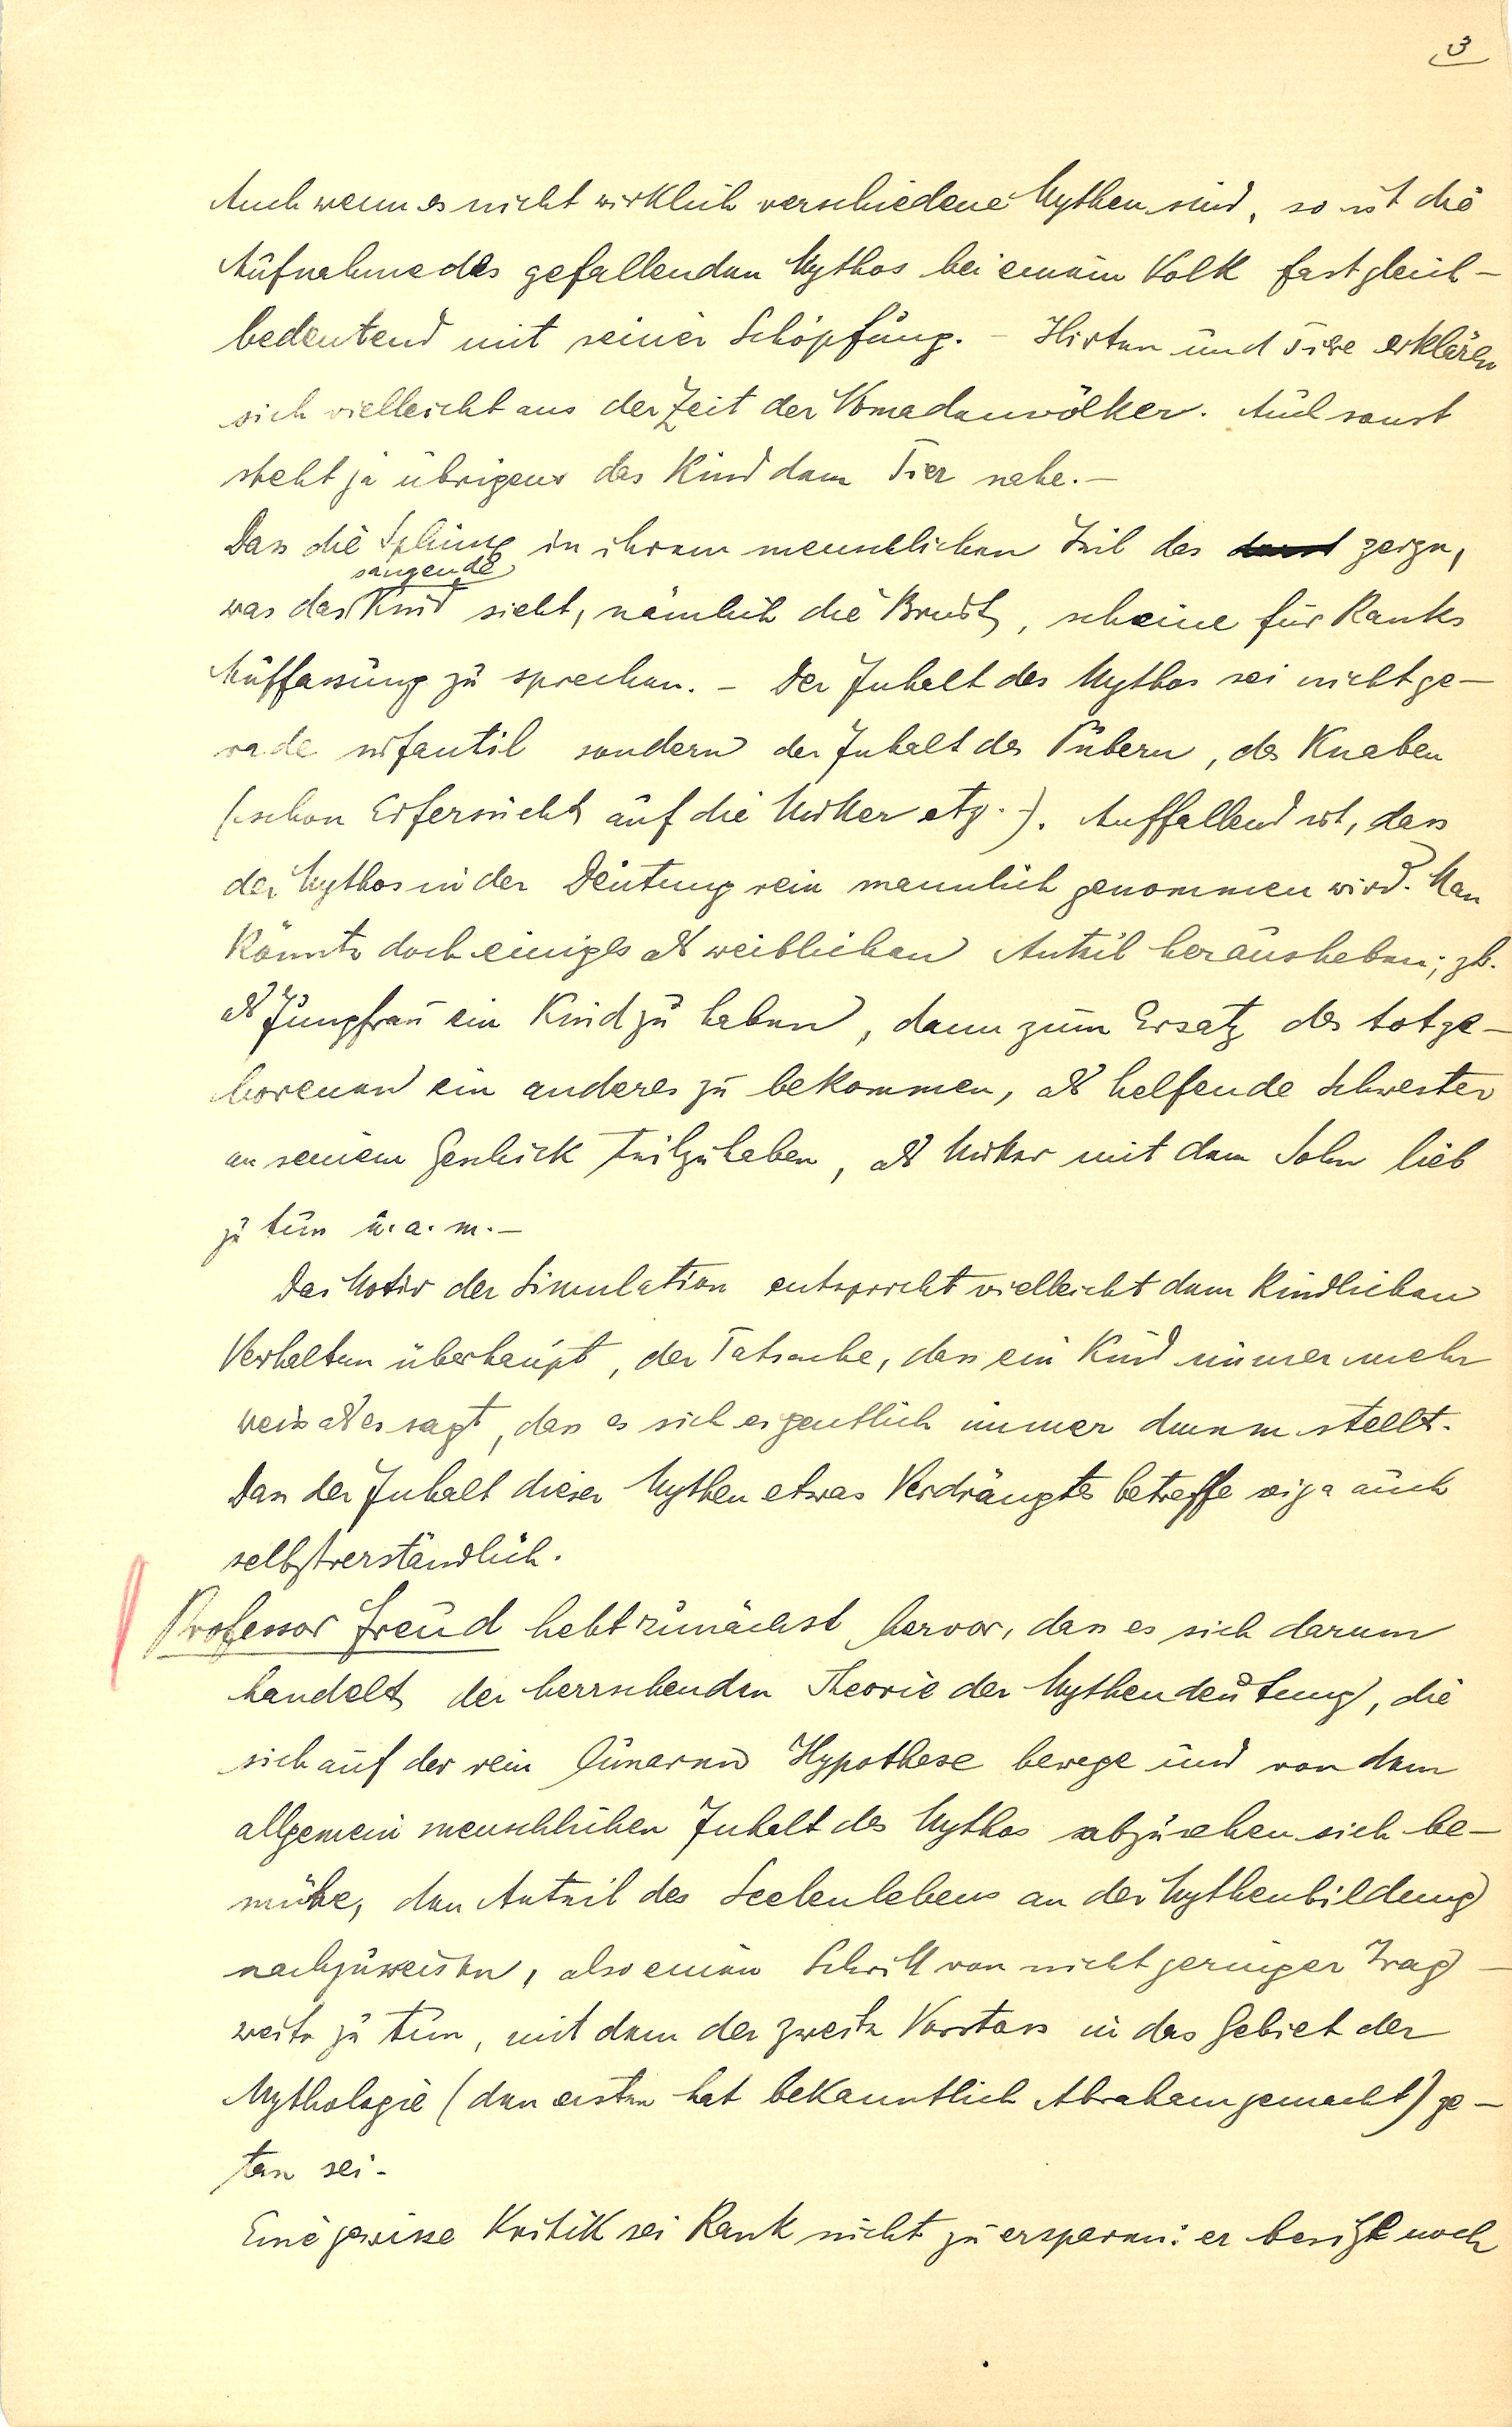 3
Auch wenn es nicht wirklich verschiedene Mythen sind, so ist die
Aufnahme des gefallenden Mythos bei einem Volk fast gleich-
bedeutend mit seiner Schöpfung. – Hirten und Tiere erklären
sich vielleicht aus der Zeit der Nomadenvölker. Auch sonst
steht ja übrigens das Kind dem Tier nahe. –
Dass die Sphinx in ihrem menschlichen Teil das zeige,
saugende
was das Kind sieht, nämlich die Brust, scheine für Ranks
Auffassung zu sprechen. – Der Inhalt des Mythos sei nicht ge-
rade infantil sondern der Inhalt des Pubern, des Knaben
(schon Eifersucht auf die Mutter etz. –). Auffallend ist, dass
der Mythos in der Deutung rein mannlich genommen wird. Man
könnte doch einiges als weiblichen Anteil herausheben; zb.
als Jungfrau ein Kind zu haben, dann zum Ersatz des totge-
borenen ein anderes zu bekommen, als helfende Schwester
an seinem Geschick teilzuhaben, als Mutter mit dem Sohn lieb
zu tun u. a. m. –
Das Motiv der Simulation entspricht vielleicht dem kindlichen
Verhalten überhaupt, der Tatsache, dass ein Kind immer mehr
weiss als es sagt, dass es sich eigentlich immer dumm stellt.
Dass der Inhalt dieser Mythen etwas Verdrängtes betreffe sei ja auch
selbstverständlich.
Professor Freud hebt zunächst hervor, dass es sich darum
handelt, der herrschenden Theorie der Mythendeutung, die
sich auf der rein lunaren Hypothese bewege und von dem
allgemein menschlichen Inhalt des Mythos abzusehen sich be-
mühe, den Anteil des Seelenlebens an der Mythenbildung
nachzuweisen, also einen Schritt von nicht geringer Trag-
weite zu tun, mit dem der zweite Vorstoss in das Gebiet der
Mythologie (den ersten hat bekanntlich Abraham gemacht) ge-
tan sei.
Eine gewisse Kritik sei Rank nicht zu ersparen: er besitze noch